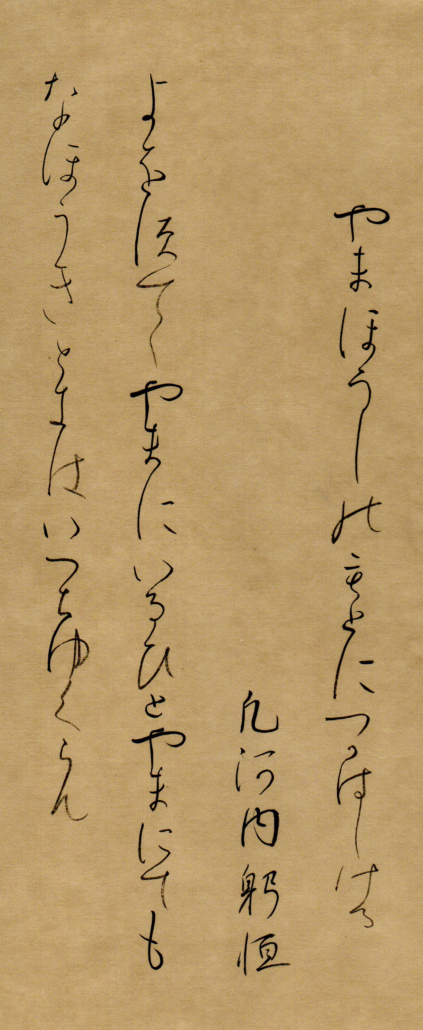 やまほうしのもとにつかはしける
凡河内躬恒
よをすてゝやまにいるひとやまにても
なほうきときはいつちゆくらん